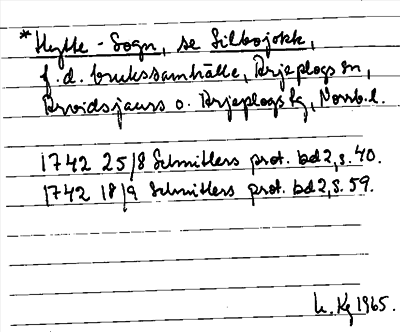 *Hytte-Sogn, se Silbojokk,
f.d. brukssamhälle, Arjeplogs sn,
Arvidsjaurs o. Arjeplogs lg, Norrb.l.
1742 25/8 Schnitlers prot. bd 2, s. 40.
1742 18/9 Schnitlers prot. bd 2, s. 59.
1965.